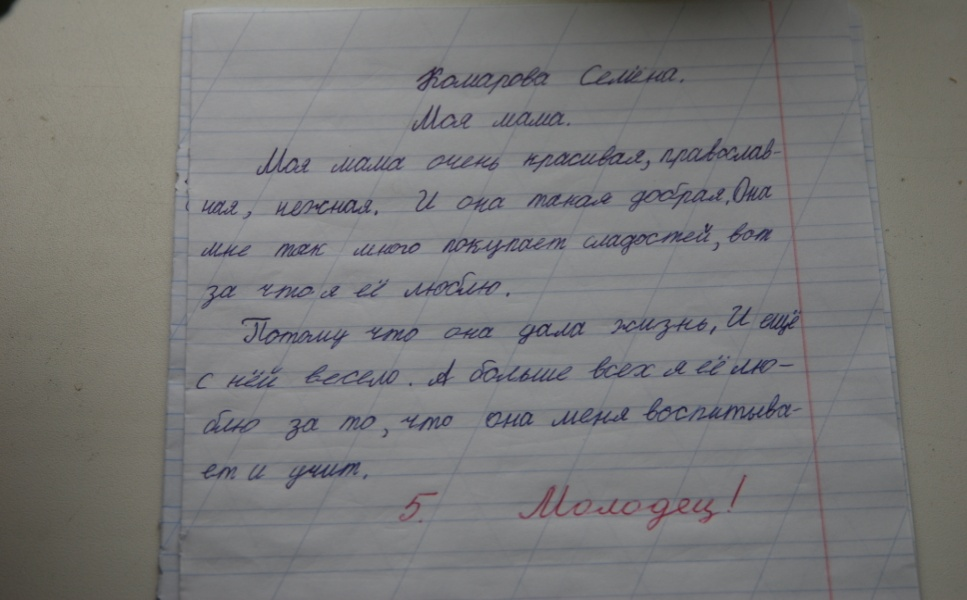 Комарова Селена.
Моя мама.
Моя мама очень красивая, православ-
ная, нежная. И она такая добрая. Она
мне так много покупает сладостей, вот
за что я её люблю.
Потому что она дала жизнь. И ещё
с ней весело. А больше всех я её лю-
блю за то, что она меня воспитыва-
ет и учит.
5. Молодец!